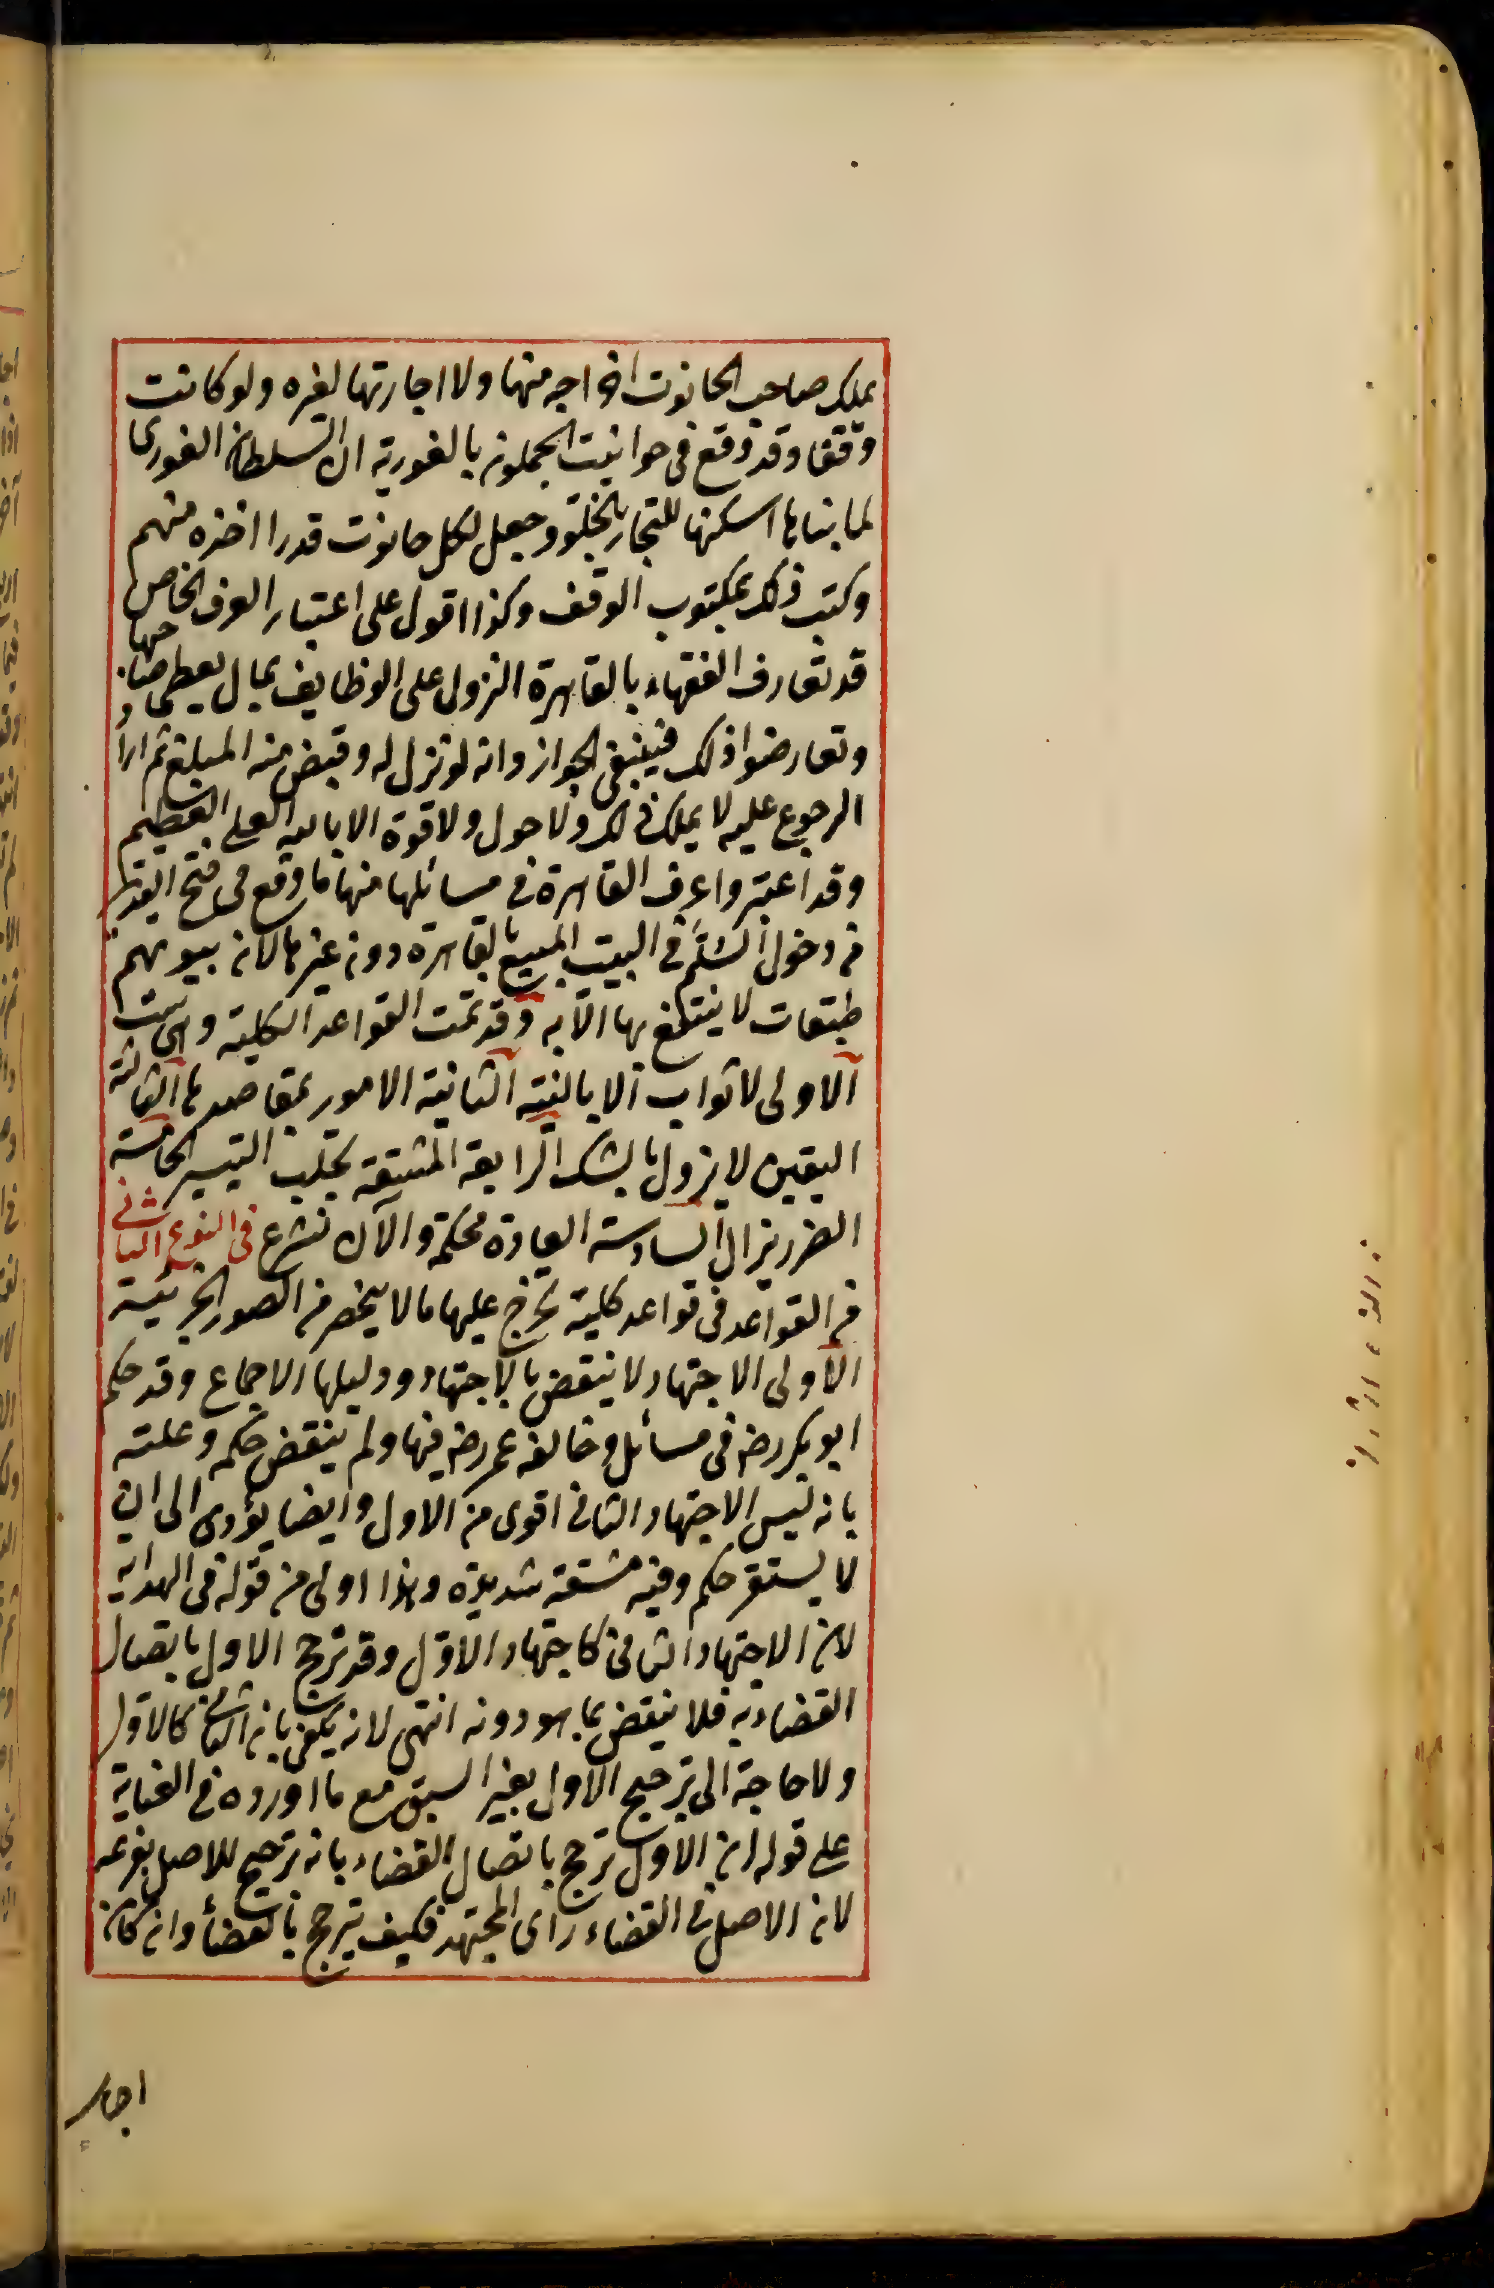 يملك صاحب الحانوت اخراجه منها ولا اجارتها لغيره ولو كانت
وقفا وقد وقع في حوانيت الجملون بالغورية ان السلطان الغوري
لما بناها اسكنها للتجار بالخلو وجعل لكل حانوت قدرا اخذه منهم
وكتب ذلك بمكتوب الوقف وكذا اقول على اعتبار العرف الخاص
قد تعارف الفقهاء بالقاهرة النزول على الوظايف بمال يعطى لصاحبها
وتعارضوا ذلك فينبغي الجواز وانه لو نزل له وقبض منه المبلغ ثم اراد
الرجوع عليه لا يملك ذلك ولا حول ولا قوة الا بالله العلي العظيم
وقد اعتبروا عرف القاهرة في مسائلها منها ما وقع في فتح القدير
من دخول السلم في البيت المبيع بالقاهرة دون غيرها لان بيوتهم
طبقات لا ينتفع بها الا به وقد تمت القواعد الكلية وهي ست
الاولى لا ثواب الا بالنية الثانية الامور بمقاصدها الثالثة
اليقين لا يزول بالشك الرابعة المشقة تجلب التيسير الخامسة
الضرر يزال السادسة العادة محكمة والآن نشرع في النوع الثاني
من القواعد في قواعد كلية تخرج عليها ما لا ينحصر من الصور الجزئية
الاولى الاجتهاد لا ينقض بالاجتهاد ودليلها الاجماع وقد حكم
ابو بكر رضه في مسائل وخالفه عمر رضه فيها ولم ينقض حكمه وعلته
بانه ليس الاجتهاد الثاني اقوى من الاول وايضا يؤدى الى ان
لا يستقر حكم وفيه مشقة شديدة وهذا اولى من قوله في الهداية
لان الاجتهاد الثاني كاجتهاد الاول وقد ترجح الاول باتصال
القضاء به فلا ينقض بما هو دونه انتهى لانه يكفى بان الثاني كالاول
ولا حاجة الى ترجيح الاول بغير السبق مع ما اورده في العناية
على قوله ان الاول ترجح باتصال القضاء بانه ترجيح للاصل بفرعه
لان الاصل في القضاء راى المجتهد فكيف يترجح بالقضاء وان كان